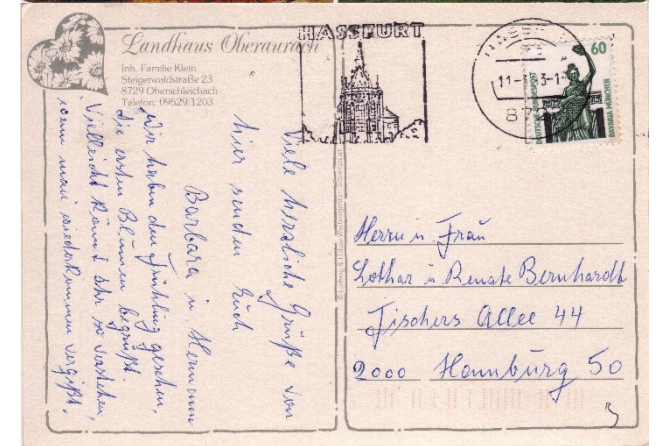 Landhaus Oberaurach
Inh. Familie Klein
Steigerwaldstraße 23
8729 Oberschleichach
Telefon: 09529/1203
HASSFURT
60
DEUTSCHE BUNDESPOST
BAVARIA MÜNCHEN
Viele herzliche Grüße von
hier senden Euch
Barbara u. Hermann
Wir haben den Frühling gesehen,
die ersten Blumen begrüßt.
Vielleicht könnt Ihr so verstehen,
wenn man wiederkommen vergißt.
Herrn u. Frau
Lothar u. Renate Bernhardt
Fischers Allee 44
2000 Hamburg 50